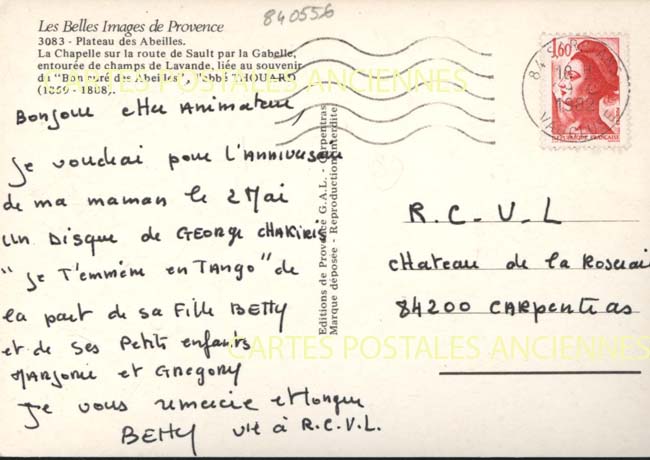 840556
Les Belles Images de Provence
3083 - Plateau des Abeilles.
La Chapelle sur la route de Sault par la Gabelle,
entourée de champs de Lavande, liée au souvenir
du "Bon curé des Abeilles", l'abbé THOUARD
(1859 - 1868).
CARTES POSTALES ANCIENNES
Bonjour cher Animateur,
Je voudrai pour l'Anniversaire
de ma maman le 2 Mai
un Disque de GEORGE CHAKIRIS
"Je T'emmène en Tango" de
la part de sa Fille BETTY
et de ses Petits enfants
MARJORIE et GREGORY
Je vous remercie et longue
BETTY vie à R.C.V.L.
Editions de Provence G.A.L. - Carpentras
Marque déposée - Reproduction interdite
1,60
84
18
1982
R.C.V.L
chateau de la Roserai
84200 CARpentras
CARTES POSTALES ANCIENNES